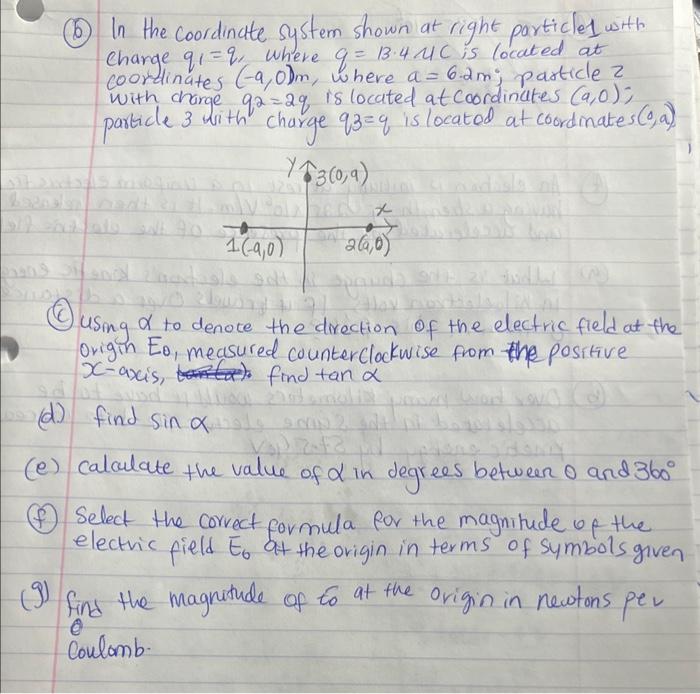 (b) In the coordinate system shown at right particle1 with
charge q1=q, where q = 13.4 μC is located at
coordinates (-a,0)m, where a = 6.2m; particle 2
with charge q2=2q is located at coordinates (a,0);
particle 3 with charge q3=q is located at coordinates (0,a)
Y 3(0,a)
x
1(-a,0) 2(a,0)
(c) using α to denote the direction of the electric field at the
origin E0, measured counterclockwise from the positive
x-axis, find tan α
(d) find sin α
(e) calculate the value of α in degrees between 0 and 360°
(f) Select the correct formula for the magnitude of the
electric field E0 at the origin in terms of symbols given
(g) find the magnitude of E0 at the origin in newtons per
Coulomb.